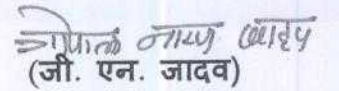 गोपाल नारायण जादव
(जी. एन. जादव)